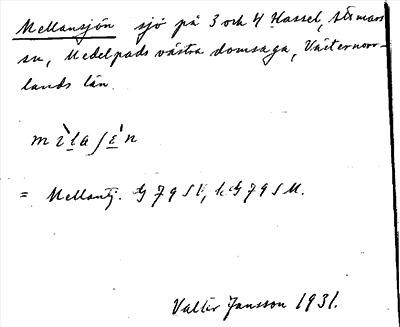 Mellansjön sjö på 3 och 4 Hassel,
sn, Medelpads västra domsaga, Västernorr-
lands län.
= Mellantj. G 79 SV, k. G 79 SU.
Valter Jansson 1931.